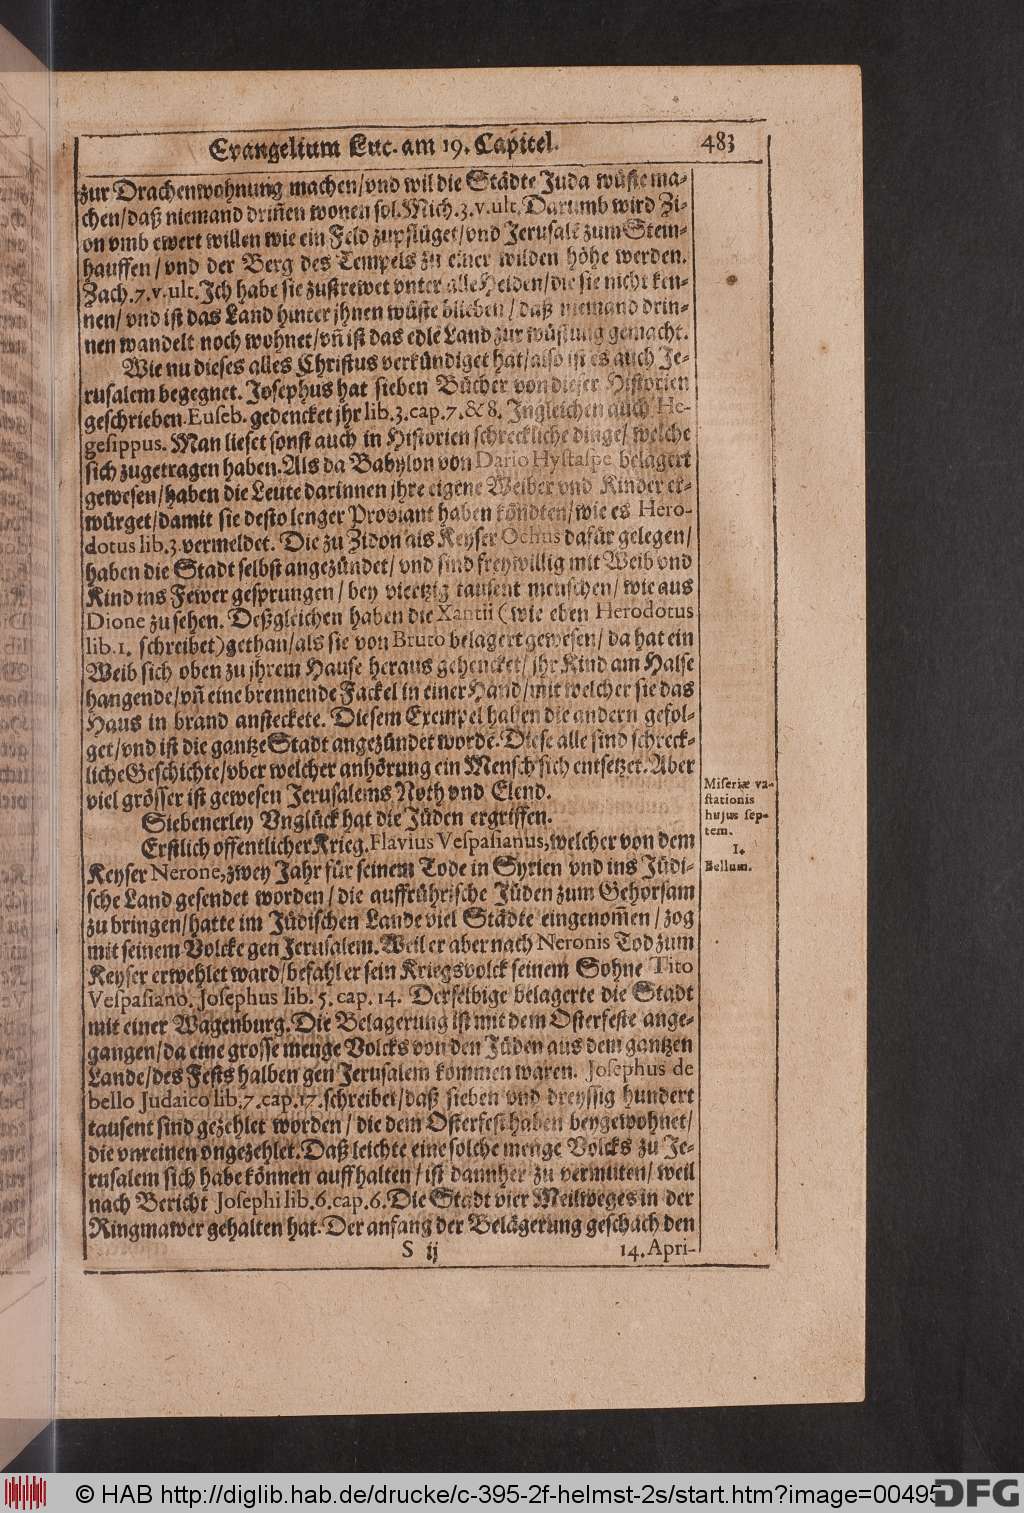 Evangelium Luc. am 19. Capitel. 483
zur Drachenwohnung machen/vnd wil die Städte Juda wüste ma-
chen/daß niemand driñen wonen sol. Mich. 3. v. ult. Darumb wird Zi-
on vmb ewert willen wie ein Feld zupflüget/vnd Jerusalē zum Stein-
hauffen/vnd der Berg des Tempels zu einer wilden höhe werden.
Zach. 7. v. ult. Ich habe sie zustrewet vnter alle Heiden/die sie nicht ken-
nen/vnd ist das Land hinter jhnen wüste blieben/daß niemand drin-
nen wandelt noch wohnet/vñ ist das edle Land zur wüstung gemacht.
Wie nu dieses alles Christus verkündiget hat/also ist es auch Je-
rusalem begegnet. Josephus hat sieben Bücher von dieser Historien
geschrieben. Euseb. gedencket jhr lib. 3. cap. 7. & 8. Ingleichen auch He-
gesippus. Man lieset sonst auch in Historien schreckliche dinge/welche
sich zugetragen haben. Als da Babylon von Dario Hystaspe belagert
gewesen/haben die Leute darinnen jhre eigene Weiber vnd Kinder er-
würget/damit sie desto lenger Proviant haben köndten/wie es Hero-
dotus lib. 3. vermeldet. Die zu Zidon als Keyser Ochus dafür gelegen/
haben die Stadt selbst angezündet/vnd sind freywillig mit Weib vnd
Kind ins Fewer gesprungen/bey viertzig tausent menschen/wie aus
Dione zu sehen. Deßgleichen haben die Xantii (wie eben Herodotus
lib. 1. schreibet) gethan/als sie von Bruto belagert gewesen/da hat ein
Weib sich oben zu jhrem Hause heraus gehencket/jhr Kind am Halse
hangende/vñ eine brennende Fackel in einer Hand/mit welcher sie das
Haus in brand ansteckete. Diesem Exempel haben die andern gefol-
get/vnd ist die gantze Stadt angezündet wordē. Diese alle sind schreck-
liche Geschichte/vber welcher anhörung ein Mensch sich entsetzet. Aber
viel grösser ist gewesen Jerusalems Noth vnd Elend.
Siebenerley Vnglück hat die Jüden ergriffen.
Miseriæ va-
stationis
hujus sep-
tem.
1.
Bellum.
Erstlich offentlicher Krieg. Flavius Vespasianus, welcher von dem
Keyser Nerone, zwey Jahr für seinem Tode in Syrien vnd ins Jüdi-
sche Land gesendet worden/die auffrührische Jüden zum Gehorsam
zu bringen/hatte im Jüdischen Lande viel Städte eingenom̄en/zog
mit seinem Volcke gen Jerusalem. Weil er aber nach Neronis Tod zum
Keyser erwehlet ward/befahl er sein Kriegsvolck seinem Sohne Tito
Vespasiano. Josephus lib. 5. cap. 14. Derselbige belagerte die Stadt
mit einer Wagenburg. Die Belagerung ist mit dem Osterfeste ange-
gangen/da eine grosse menge Volcks von den Jüden aus dem gantzen
Lande/des Fests halben gen Jerusalem kommen waren. Josephus de
bello Judaico lib. 7. cap. 17. schreibet/daß sieben vnd dreyssig hundert
tausent sind gezehlet worden/die dem Osterfest haben beygewohnet/
die vnreinen vngezehlet. Daß leichte eine solche menge Volcks zu Je-
rusalem sich habe können auffhalten/ist dannher zu vermuten/weil
nach Bericht Josephi lib. 6. cap. 6. Die Stadt vier Meilweges in der
Ringmawer gehalten hat. Der anfang der Belägerung geschach den
S ij 14. Apri-
© HAB http://diglib.hab.de/drucke/c-395-2f-helmst-2s/start.htm?image=00495
DFG